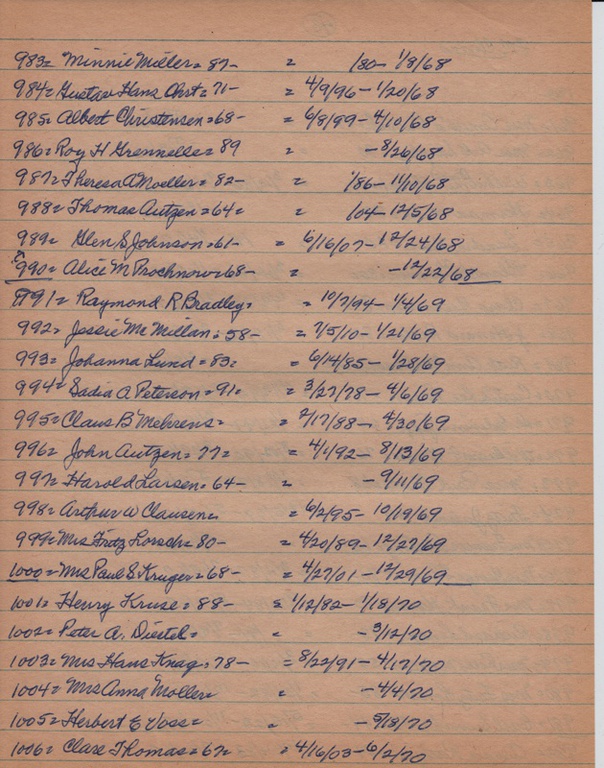 983= Minnie Miller= 87- = 1/80- 1/8/68
984= Gustav Hans Ohrt= 71- = 4/9/96- 1/20/68
985= Albert Christensen=68- = 6/8/99- 4/10/68
986= Roy H Grennelle= 89 = -8/26/68
987= Theresa A Moeller= 82- = 1/86- 11/10/68
988= Thomas Autzen=64= = 1/04- 12/5/68
989= Glen S Johnson=61- = 6/16/07- 12/24/68
990= Alice M Prochnow=68- = -12/22/68
991= Raymond R Bradley= = 10/7/94- 1/4/69
992= Jessie McMillan= 58- = 7/5/10- 1/21/69
993= Johanna Lund= 83= = 6/14/85- 1/28/69
994= Sadia A Peterson= 91= = 3/27/78- 4/6/69
995= Claus B Mehrens= = 2/17/88- 4/30/69
996= John Autzen= 77= = 4/1/92- 8/13/69
997= Harold Larsen= 64- = - 9/11/69
998= Arthur W Clausen= = 6/2/95- 10/19/69
999= Mrs Fritz = 80- = 4/20/89- 12/27/69
1000= Mrs Paul S Kruger=68- = 4/27/01- 12/29/69
1001= Henry Kruse= 88- = 1/12/82- 1/18/70
1002= Peter A. Diestel= = - 3/12/70
1003= Mrs Hans Knag= 78- = 8/22/91- 4/17/70
1004= Mrs Anna Moller= = -4/4/70
1005= Herbert E Voss= = - 5/13/70
1006= Clare Thomas= 67= = 4/16/03- 6/2/70